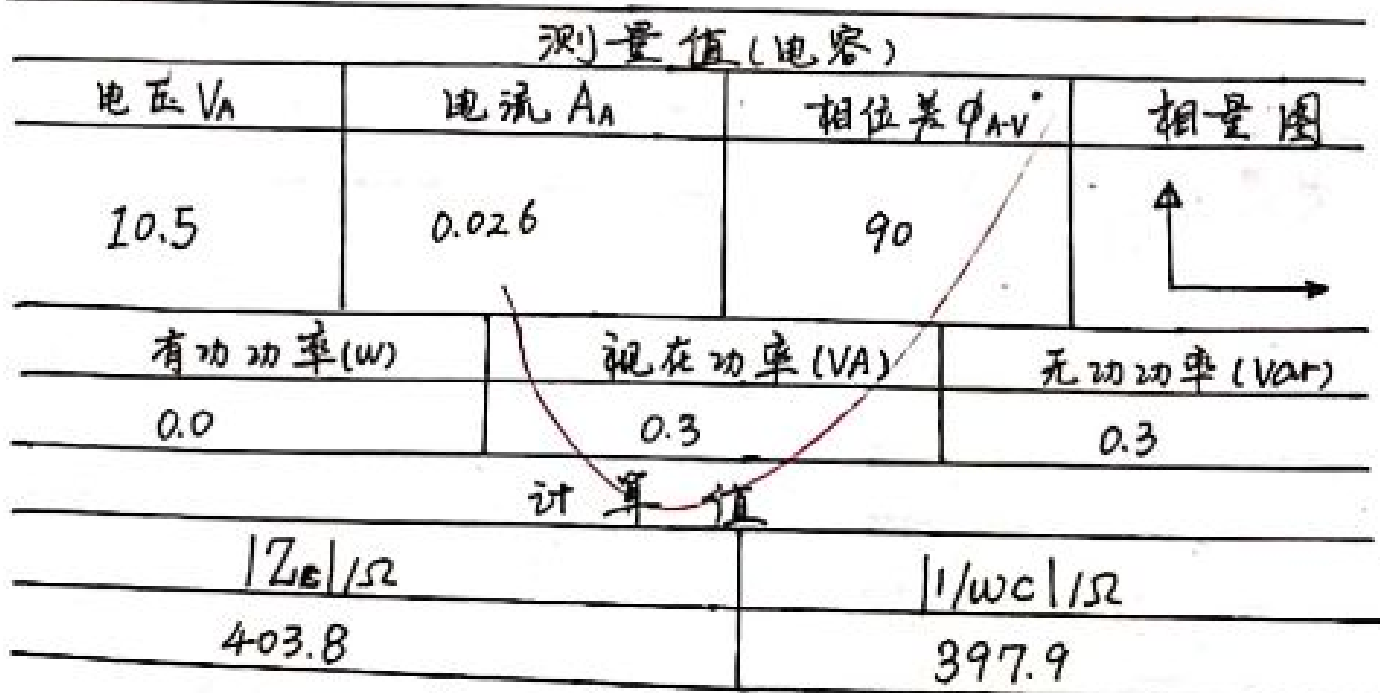 测量值(电容)
电压 VA 电流 AA 相位差 φA-V° 相量图
10.5 0.026 90
有功功率(W) 视在功率(VA) 无功功率(Var)
0.0 0.3 0.3
计算值
|Zc|/Ω |1/ωC|/Ω
403.8 397.9